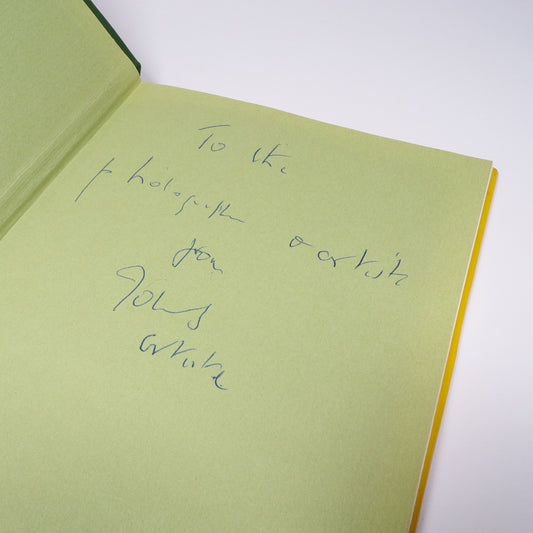 To the
photographer & artist
from
John
artist